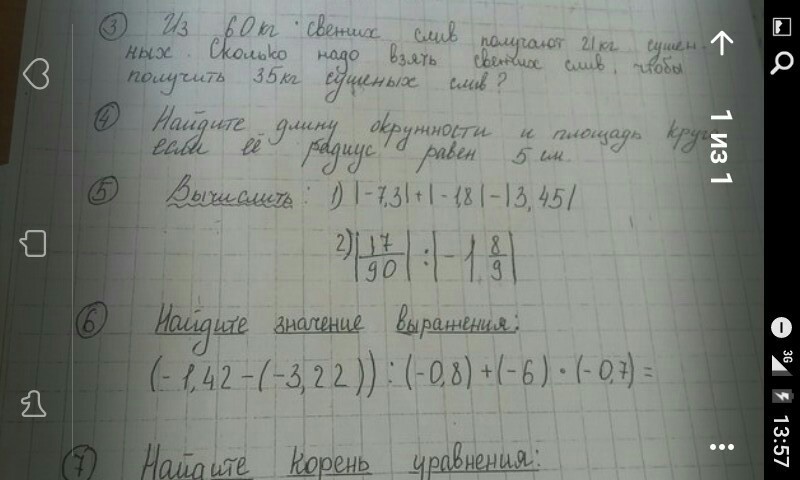 ③ Из 60 кг свежих слив получают 21 кг сушен-
ных. Сколько надо взять свежих слив, чтобы
получить 35 кг сушеных слив?
④ Найдите длину окружности и площадь круга
если её радиус равен 5 см.
⑤ Вычислить: 1) |-7,3|+|-1,8|-|3,45|
2) |17/90| : |-1 8/9|
⑥ Найдите значение выражения:
(-1,42-(-3,22)):(-0,8)+(-6)·(-0,7)=
⑦ Найдите корень уравнения:
1 из 1
3G
13:57